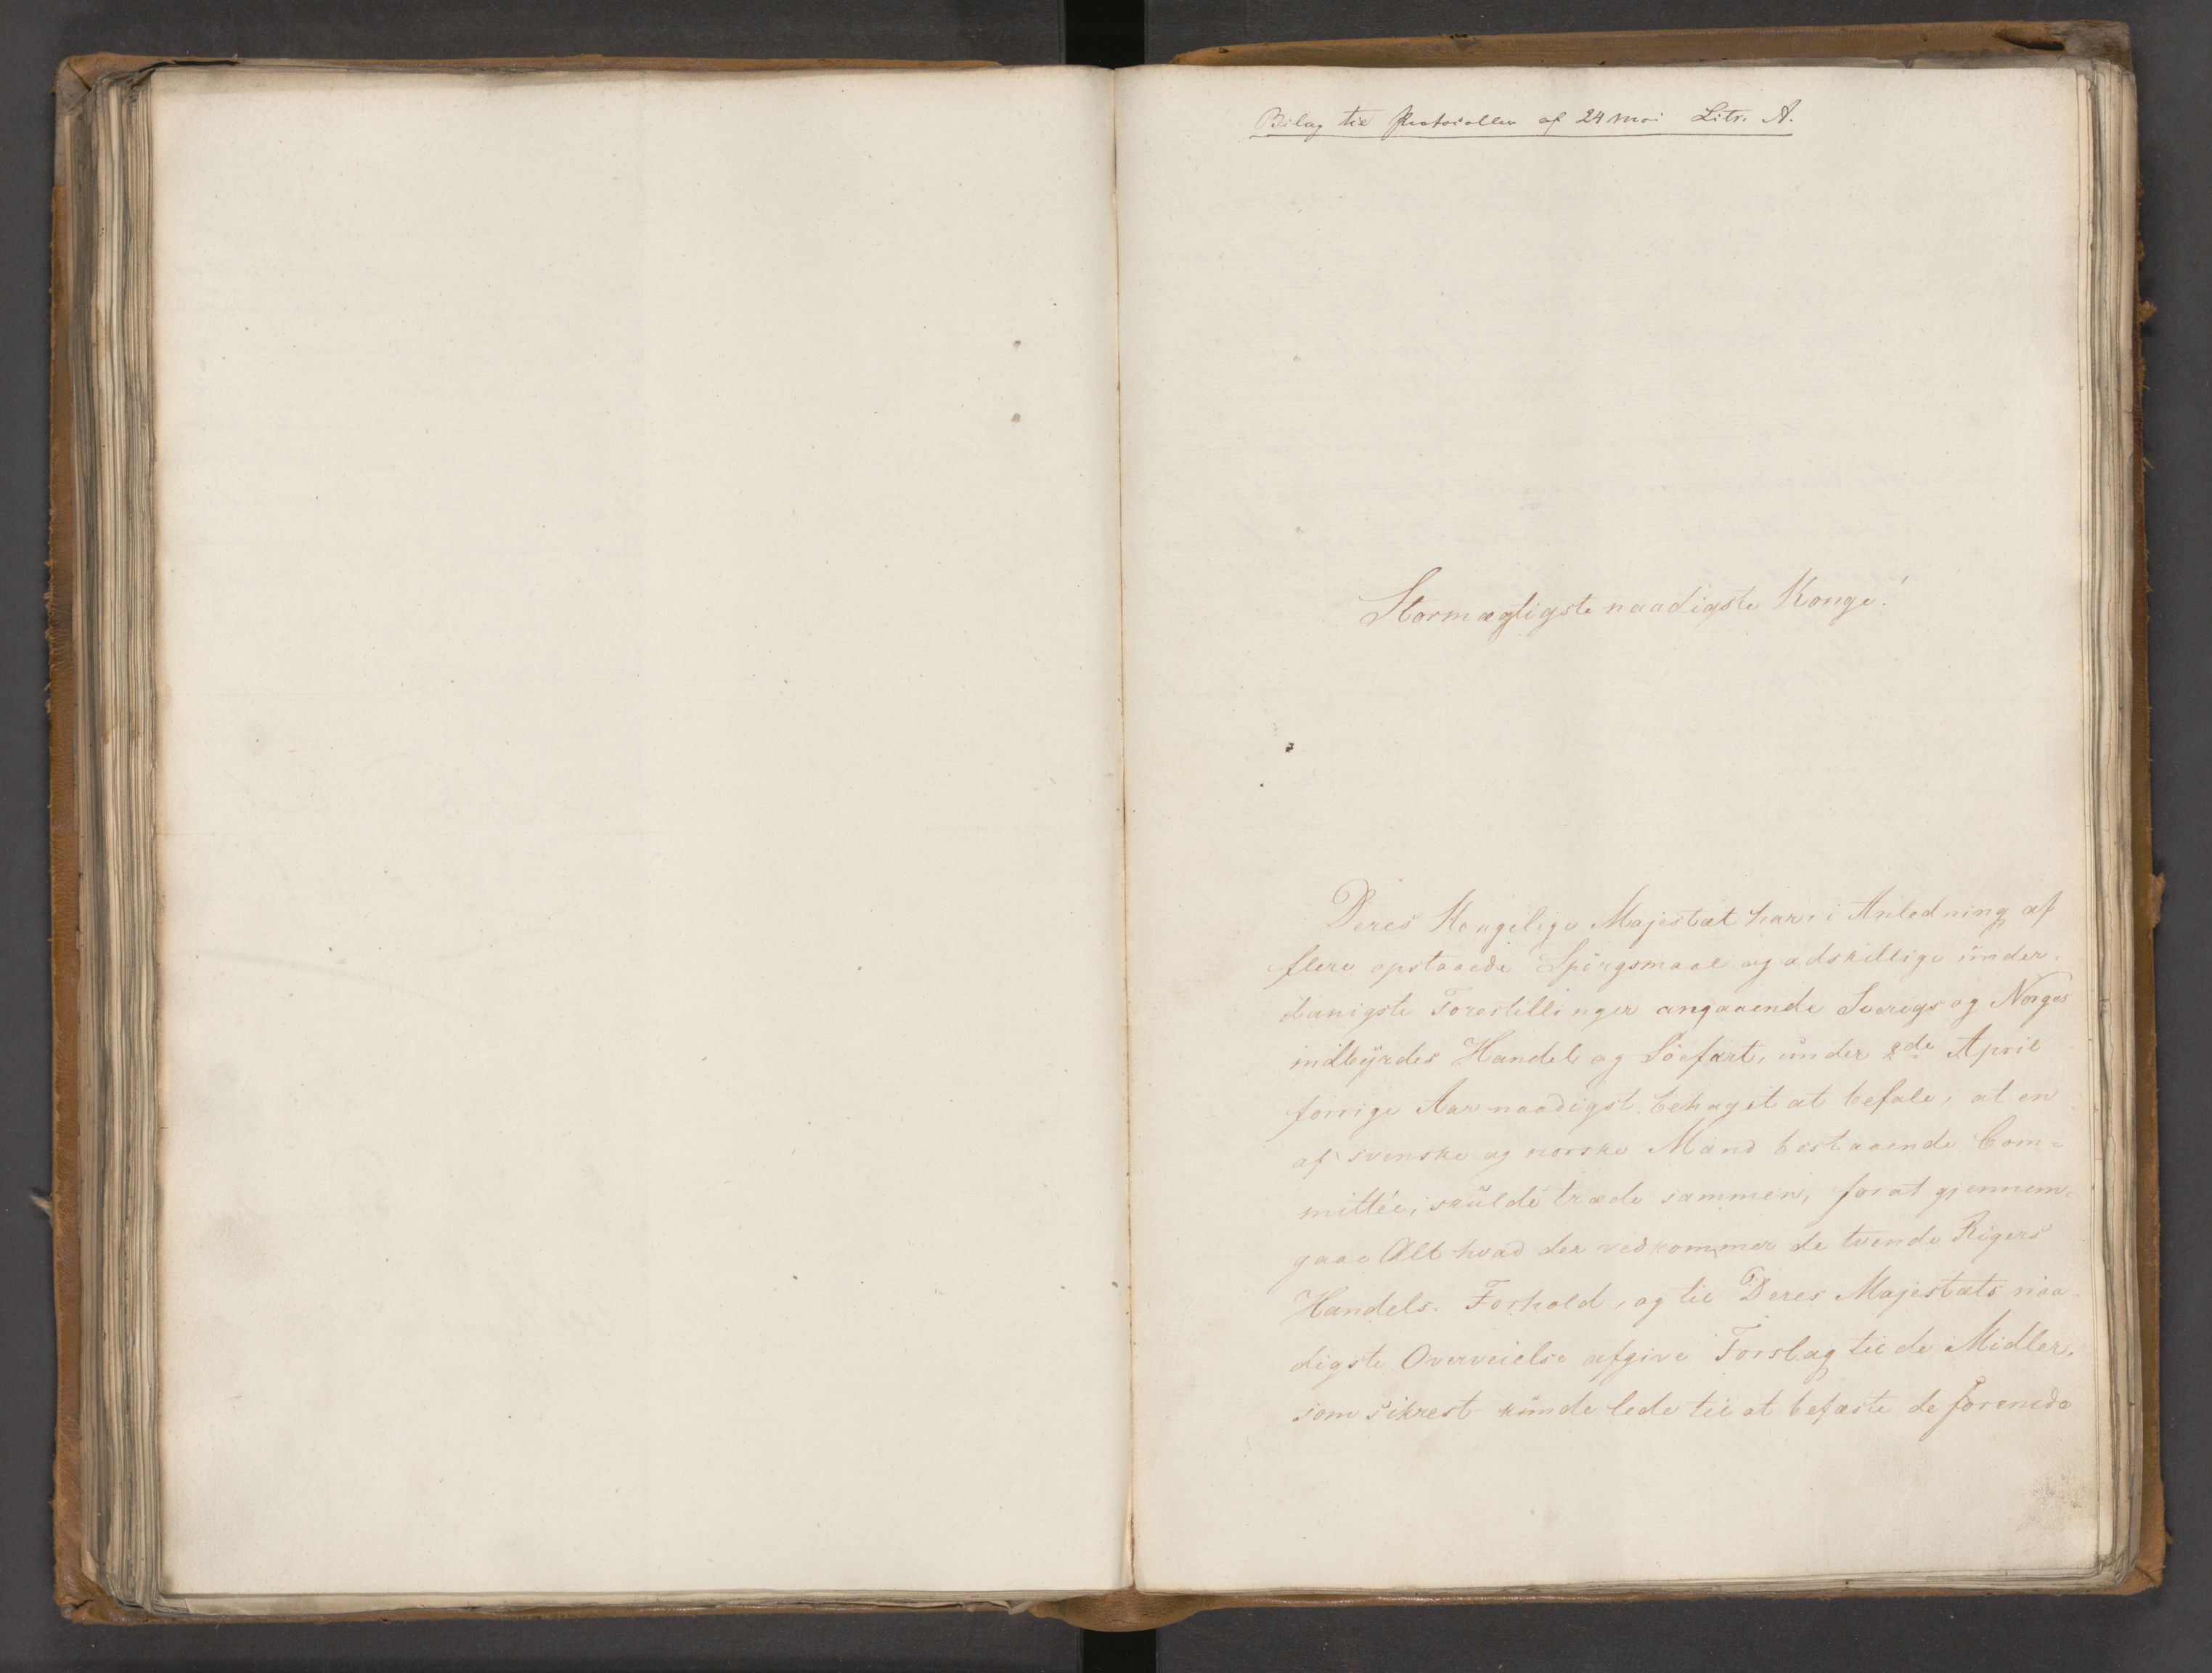 Bilag til Protocollen af 24 Mai Litr. A.
Stormægtigste naadigste Konge!
Deres Kongelige Majestæt har i Anledning af
flere opstaaede Spörgsmaal og adskillige under-
danigste Forestillinger angaaende Sverigs og Norges
indbyrdes Handel og Söefart, under 8de April
forrige Aar naadigst behaget at befale, at en
af svenske og norske Mænd bestaaende Com-
mittée, skulde træde sammen, for at gjennem-
gaae Alt hvad der vedkommer de tvende Rigers
Handels-Forhold, og til Deres Majestæts naa-
digste Overveielse afgive Forslag til de Midler,
som sikrest kunde lede til at befæste de forenede